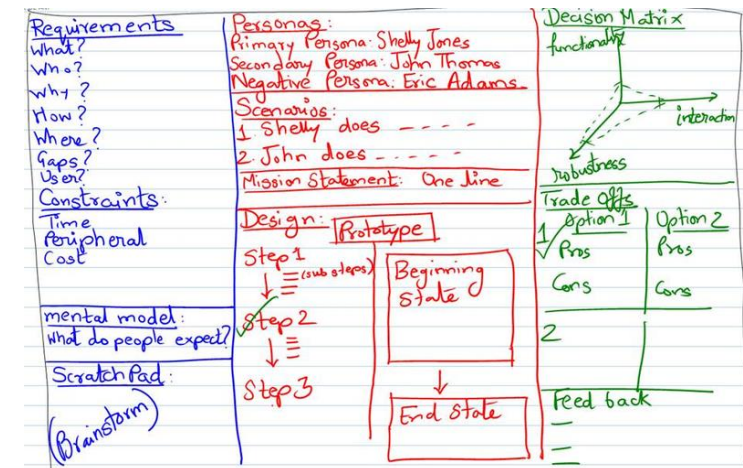 Requirements
What?
Who?
Why?
How?
Where?
Gaps?
User?
Constraints:
Time
Peripheral
Cost
mental model:
What do people expect?
Scratch Pad:
(Brainstorm)
Personas:
Primary Persona: Shelly Jones
Secondary Persona: John Thomas
Negative Persona: Eric Adams
Scenarios:
1. Shelly does - - - -
2. John does - - - - -
Mission Statement: One line
Design: Prototype
Step 1
(sub steps)
Step 2
Step 3
Beginning
State
End State
Decision Matrix
functionality
interaction
robustness
Trade offs
1 Option 1 Option 2
Pros Pros
Cons Cons
2
Feed back